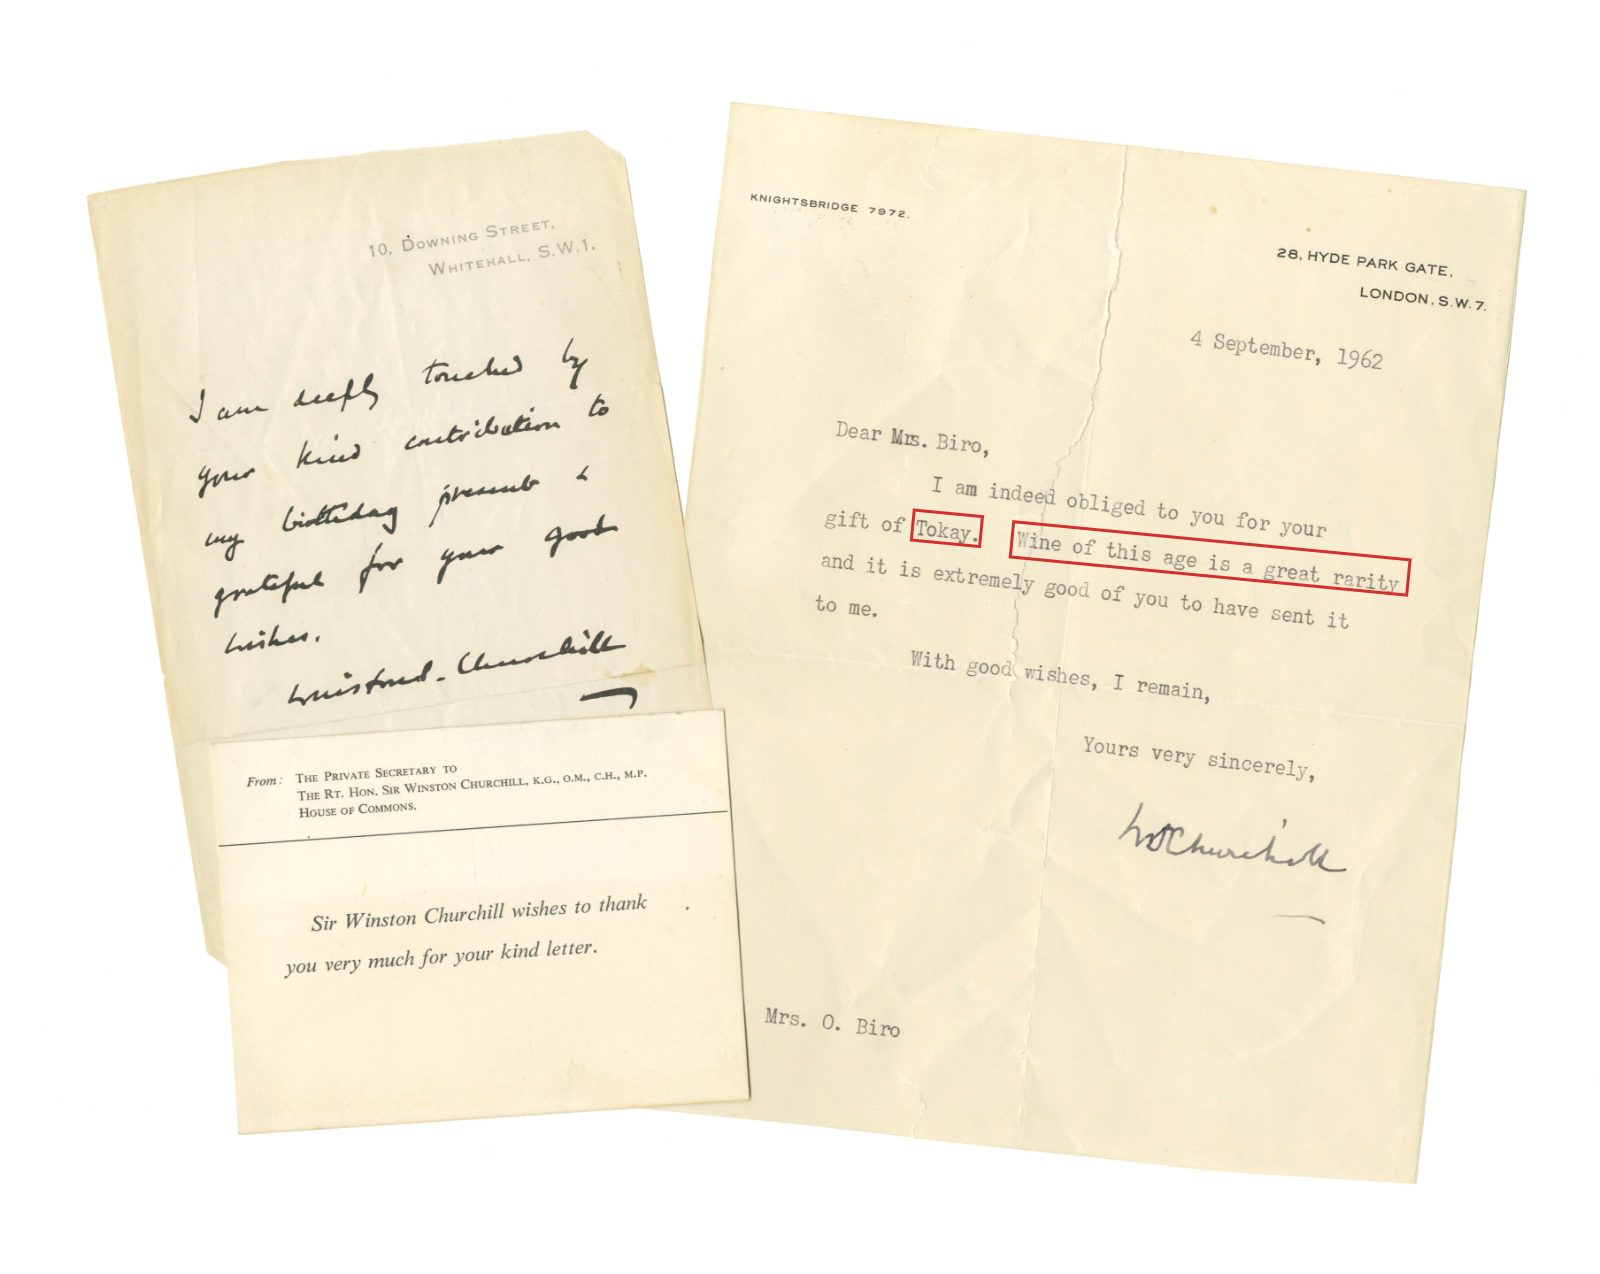 10, DOWNING STREET,
WHITEHALL, S.W.1.
I am deeply touched by
your kind contribution to
my birthday present &
grateful for your good
wishes.
Winston S. Churchill
From: THE PRIVATE SECRETARY TO
THE RT. HON. SIR WINSTON CHURCHILL, K.G., O.M., C.H., M.P.
HOUSE OF COMMONS.
Sir Winston Churchill wishes to thank
you very much for your kind letter.
KNIGHTSBRIDGE 7972.
28, HYDE PARK GATE,
LONDON, S.W.7.
4 September, 1962
Dear Mrs. Biro,
I am indeed obliged to you for your
gift of Tokay. Wine of this age is a great rarity
and it is extremely good of you to have sent it
to me.
With good wishes, I remain,
Yours very sincerely,
W S Churchill
Mrs. O. Biro